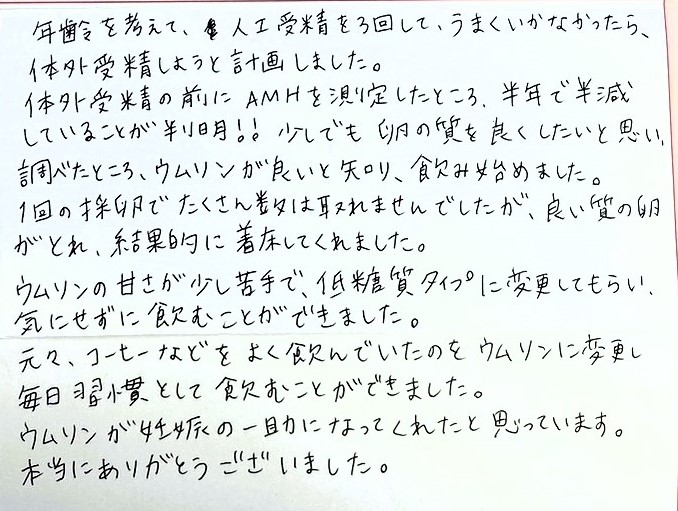 年齢を考えて、人工受精を3回して、うまくいかなかったら、
体外受精しようと計画しました。
体外受精の前にAMHを測定したところ、半年で半減
していることが判明!! 少しでも 卵の質を良くしたいと思い、
調べたところ、ウムリンが良いと知り、飲み始めました。
1回の採卵でたくさん数は取れませんでしたが、良い質の卵
がとれ、結果的に着床してくれました。
ウムリンの甘さが少し苦手で、低糖質タイプに変更してもらい、
気にせずに飲むことができました。
元々、コーヒーなどをよく飲んでいたのをウムリンに変更し
毎日習慣として飲むことができました。
ウムリンが妊娠の一助になってくれたと思っています。
本当にありがとうございました。